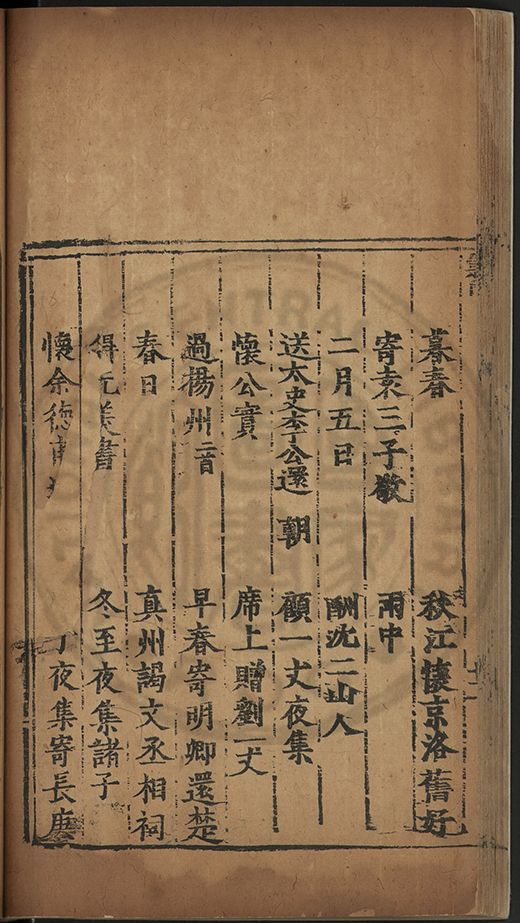 暮春 秋江懷京洛舊好
寄袁三子敬 雨中
二月五日 酬沈二山人
送太史李公還 朝 顧一丈夜集
懷公實 席上贈劉一丈
過揚州二首 早春寄明卿還楚
春日 真州謁文丞相祠
得元美書 冬至夜集諸子
懷余德甫 夜集寄長庚